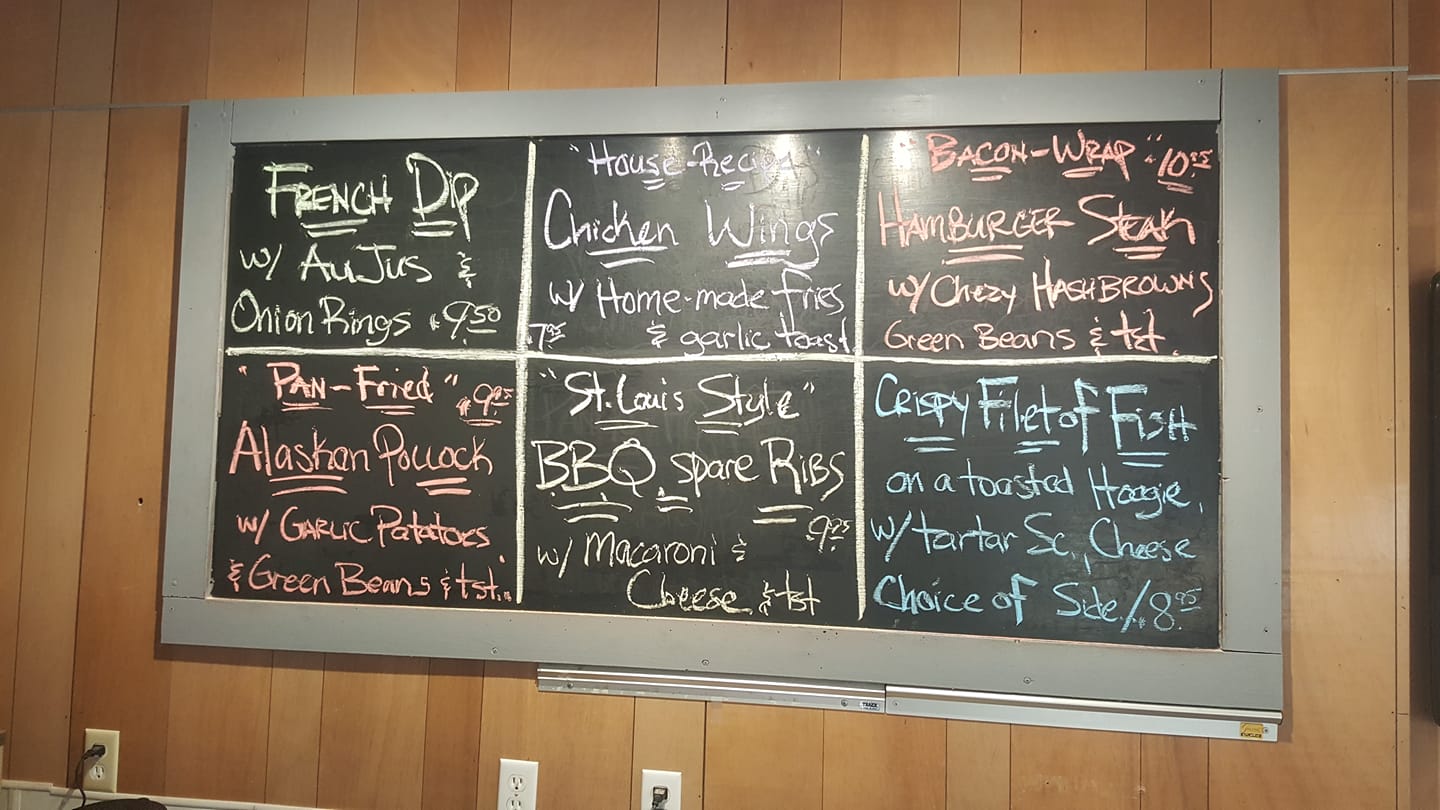 FRENCH DIP
w/ AuJus &
Onion Rings .9.50
"House-Recipe"
Chicken Wings
w/ Home-made fries
7.95 & garlic toast
"BACON-WRAP" 10.95
HAMBURGER STEAK
w/ Chezy HASHBROWNS
Green Beans & tst.
"PAN-Fried" .9.95
Alaskan Pollock
w/ GARLIC Patatoes
& Green Beans & tst.
"St. Louis Style"
BBQ spare RIBS
9.95
w/ Macaroni &
Cheese, & tst
CRISPY Filet of FISH
on a toasted Hoagie,
w/ tartar Sc., Cheese
Choice of Side/.8.95